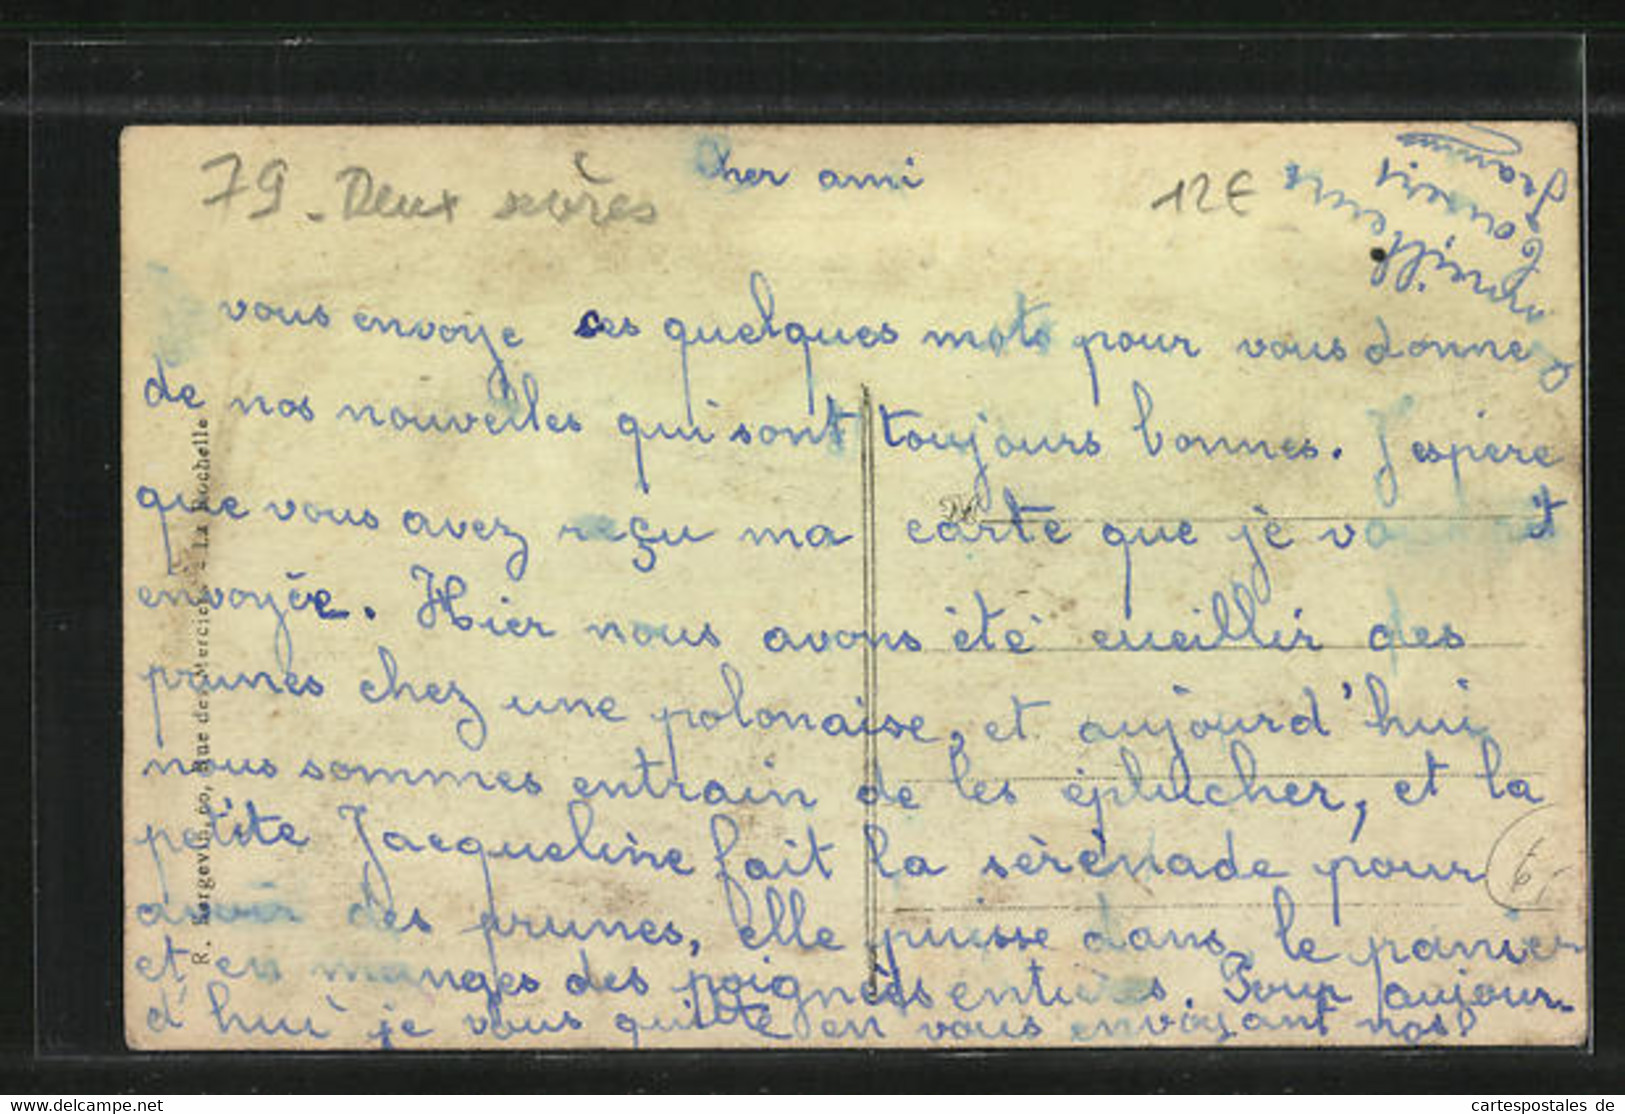 79 - Deux sèvres
Cher ami
12€
vous envoye ces quelques mots pour vous donner
de nos nouvelles qui sont toujours bonnes. J'espère
que vous avez reçu ma carte que je
envoyée. Hier nous avons été cueillir des
prunes chez une polonaise, et aujourd'hui
nous sommes entrain de les éplucher, et la
petite Jacqueline fait la sérénade pour
avoir des prunes, elle puisse dans le panier
et en manges des poignées entières. Pour aujour-
d'hui je vous quitte en vous envoyant nos
meilleurs
baisers
Jeannine
R. Bergevin, 60, Rue des Merciers à la Rochelle
cartespostales de